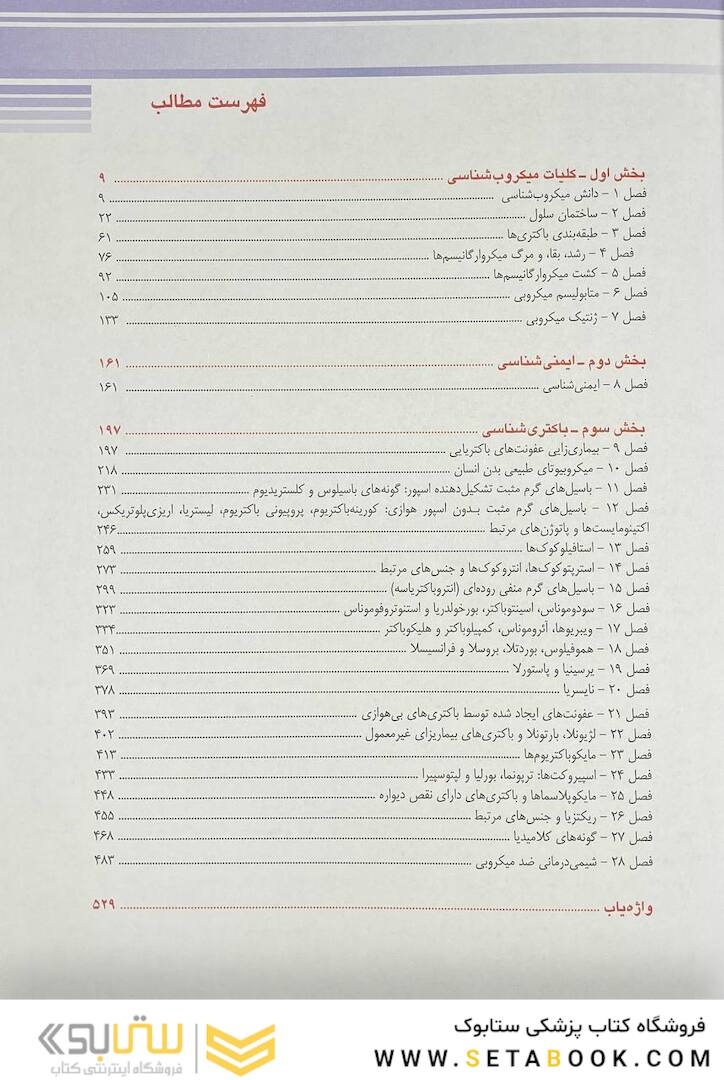 فهرست مطالب
بخش اول - کلیات میکروب‌شناسی ........ ۹
فصل ۱ - دانش میکروب‌شناسی ........ ۹
فصل ۲ - ساختمان سلول ........ ۲۲
فصل ۳ - طبقه‌بندی باکتری‌ها ........ ۶۱
فصل ۴ - رشد، بقا، و مرگ میکروارگانیسم‌ها ........ ۷۶
فصل ۵ - کشت میکروارگانیسم‌ها ........ ۹۲
فصل ۶ - متابولیسم میکروبی ........ ۱۰۵
فصل ۷ - ژنتیک میکروبی ........ ۱۳۳
بخش دوم - ایمنی‌شناسی ........ ۱۶۱
فصل ۸ - ایمنی‌شناسی ........ ۱۶۱
بخش سوم - باکتری‌شناسی ........ ۱۹۷
فصل ۹ - بیماری‌زایی عفونت‌های باکتریایی ........ ۱۹۷
فصل ۱۰ - میکروبیوتای طبیعی بدن انسان ........ ۲۱۸
فصل ۱۱ - باسیل‌های گرم مثبت تشکیل‌دهنده اسپور: گونه‌های باسیلوس و کلستریدیوم ........ ۲۳۱
فصل ۱۲ - باسیل‌های گرم مثبت بدون اسپور هوازی: کورینه‌باکتریوم، پروپیونی باکتریوم، لیستریا، اریزی‌پلوتریکس،
اکتینومایست‌ها و پاتوژن‌های مرتبط ........ ۲۴۶
فصل ۱۳ - استافیلوکوک‌ها ........ ۲۵۹
فصل ۱۴ - استرپتوکوک‌ها، انتروکوک‌ها و جنس‌های مرتبط ........ ۲۷۳
فصل ۱۵ - باسیل‌های گرم منفی روده‌ای (انتروباکتریاسه) ........ ۲۹۹
فصل ۱۶ - سودوموناس، اسینتوباکتر، بورخولدریا و استنوتروفوموناس ........ ۳۲۳
فصل ۱۷ - ویبریوها، آئروموناس، کمپیلوباکتر و هلیکوباکتر ........ ۳۳۴
فصل ۱۸ - هموفیلوس، بوردتلا، بروسلا و فرانسیسلا ........ ۳۵۱
فصل ۱۹ - یرسینیا و پاستورلا ........ ۳۶۹
فصل ۲۰ - نایسریا ........ ۳۷۸
فصل ۲۱ - عفونت‌های ایجاد شده توسط باکتری‌های بی‌هوازی ........ ۳۹۳
فصل ۲۲ - لژیونلا، بارتونلا و باکتری‌های بیماریزای غیرمعمول ........ ۴۰۲
فصل ۲۳ - مایکوباکتریوم‌ها ........ ۴۱۳
فصل ۲۴ - اسپیروکت‌ها: ترپونما، بورلیا و لپتوسپیرا ........ ۴۳۳
فصل ۲۵ - مایکوپلاسماها و باکتری‌های دارای نقص دیواره ........ ۴۴۸
فصل ۲۶ - ریکتزیا و جنس‌های مرتبط ........ ۴۵۵
فصل ۲۷ - گونه‌های کلامیدیا ........ ۴۶۸
فصل ۲۸ - شیمی‌درمانی ضد میکروبی ........ ۴۸۳
واژه‌یاب ........ ۵۲۹
فروشگاه کتاب پزشکی ستابوک
WWW.SETABOOK.COM
ستابوک
فروشگاه اینترنتی کتاب